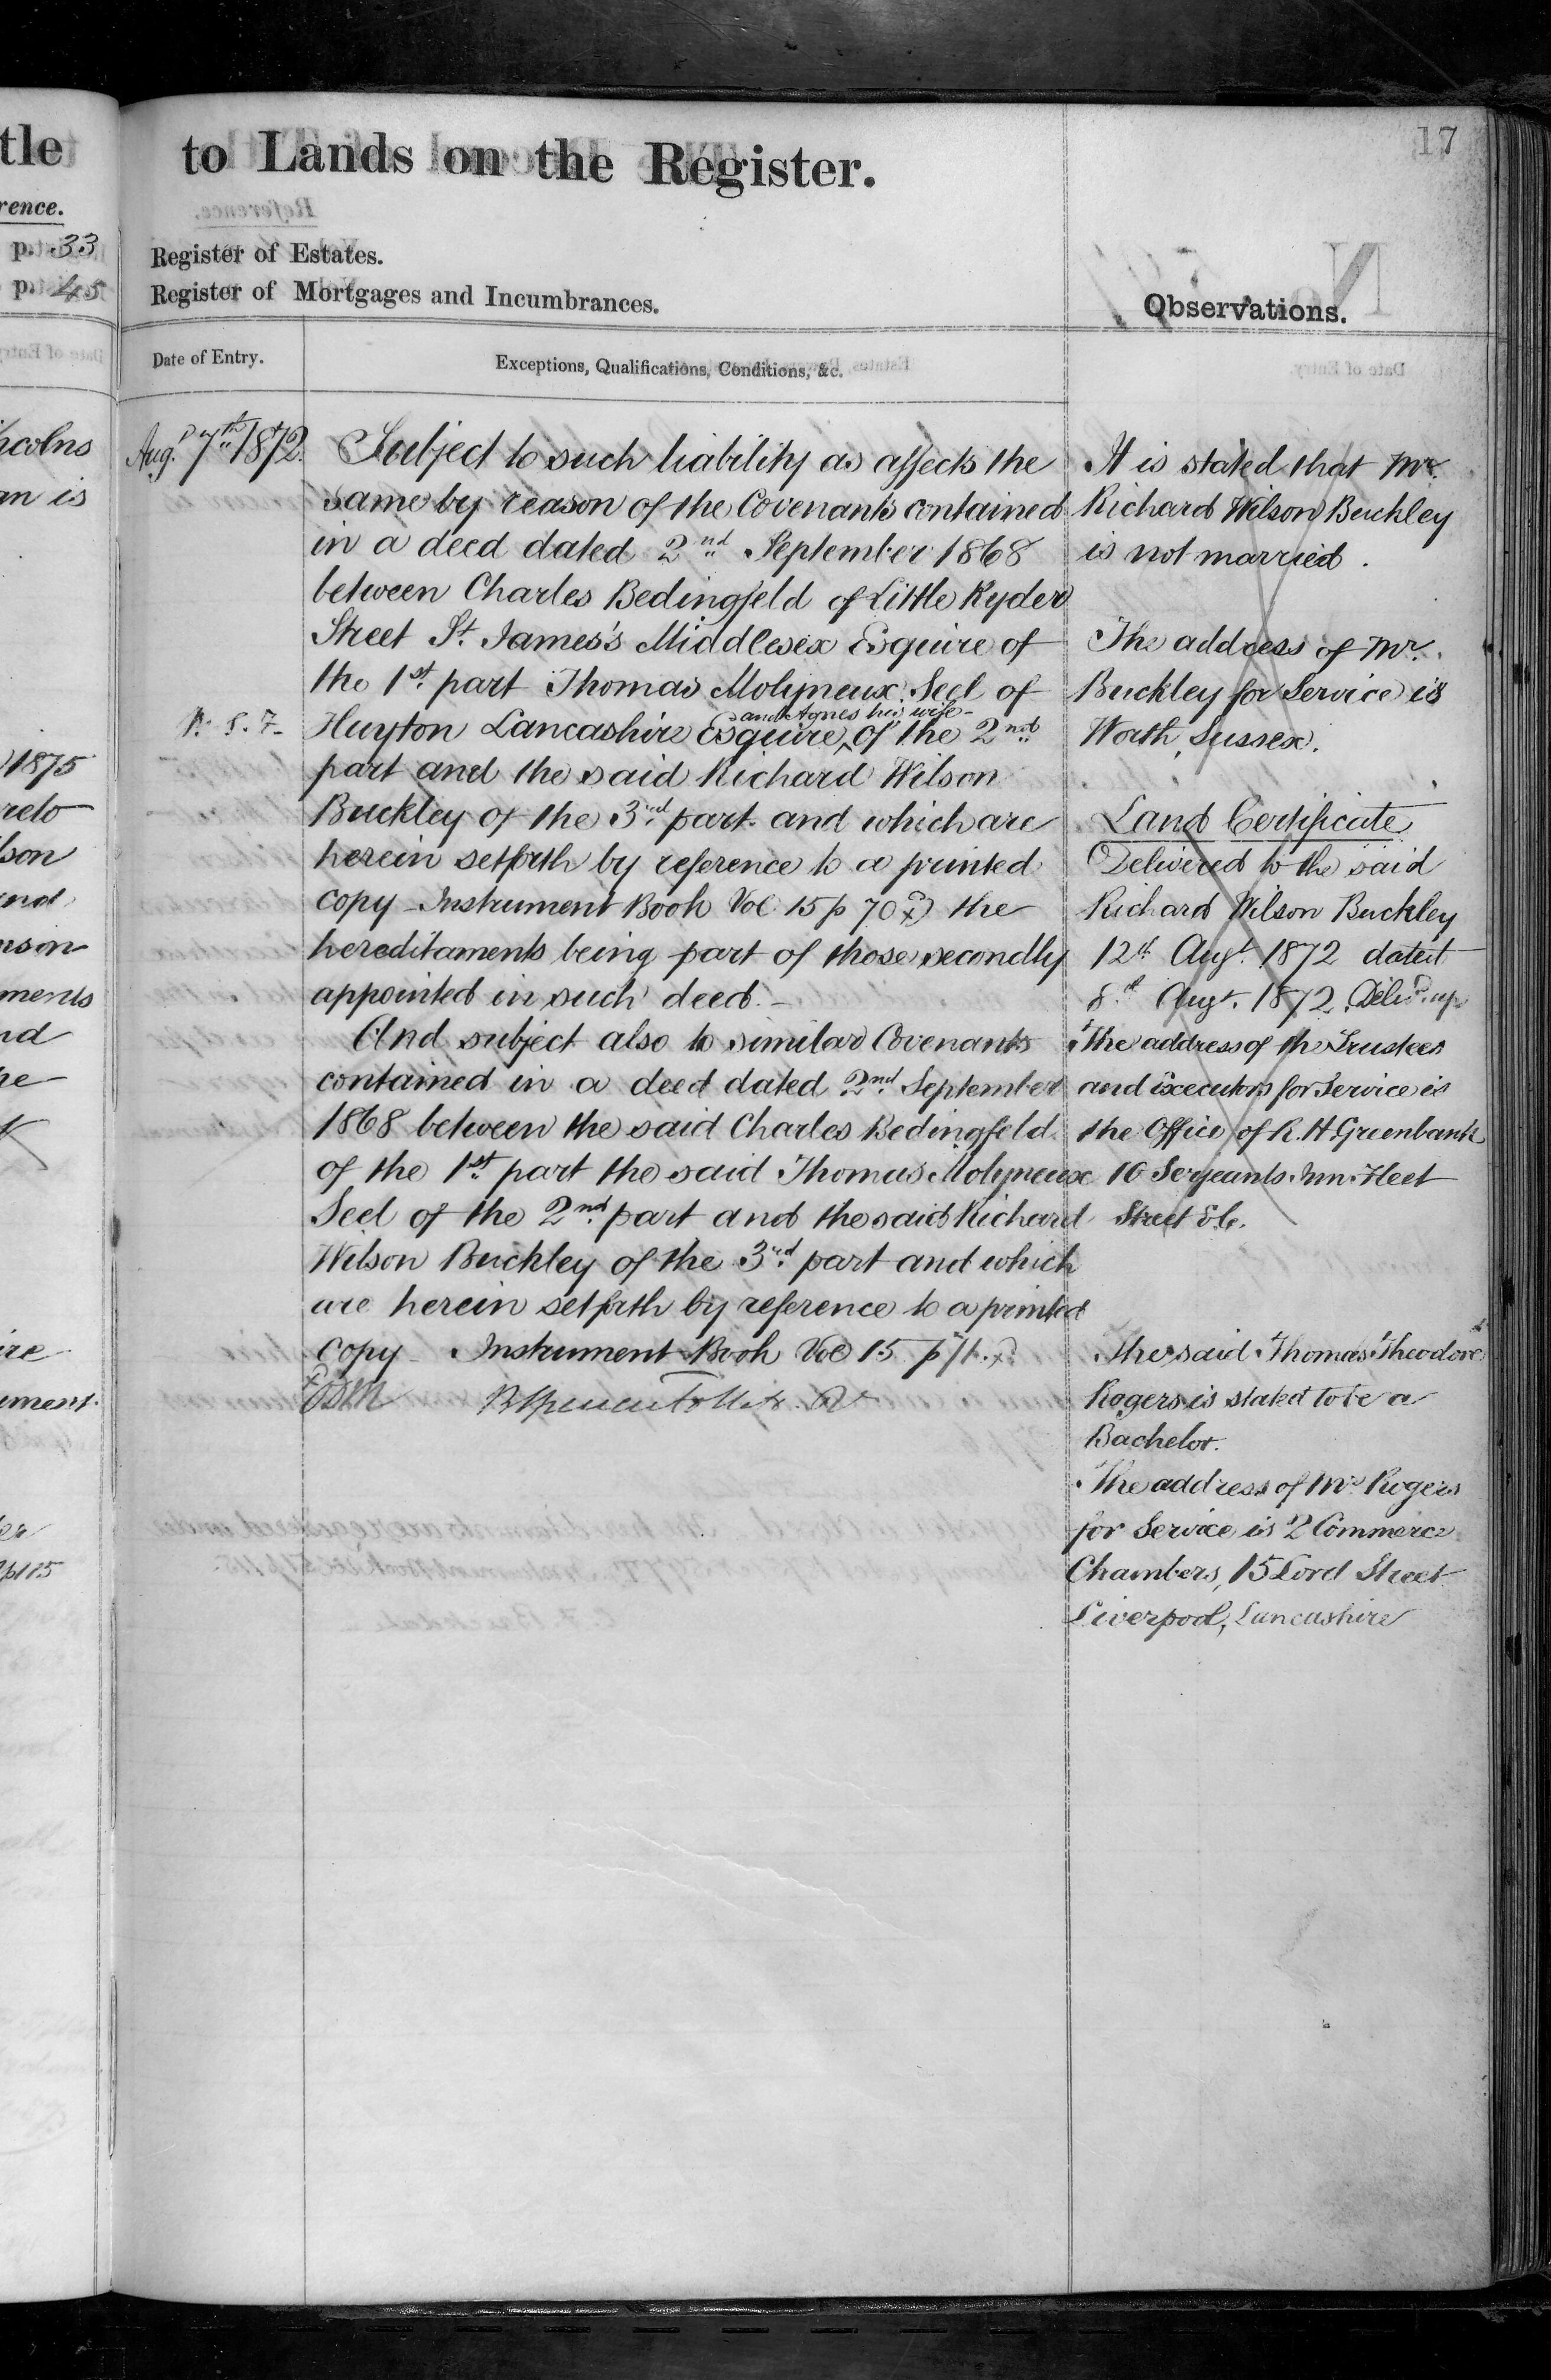 tle
rence.
p. 33
p. 45
ncolns
an is
1875
reto
lson
and
rson
ments
nd
he
ire
ument.
p115
17
to Lands on the Register.
Register of Estates.
Register of Mortgages and Incumbrances.
Date of Entry.
Exceptions, Qualifications, Conditions, &c.
Augt. 7th 1872.
Subject to such liability as affects the
same by reason of the Covenants contained
in a deed dated 2nd September 1868
between Charles Bedingfeld of Little Ryder
Street St. James's Middlesex Esquire of
the 1st. part Thomas Molyneux Seel of
and Agnes his wife
Huyton Lancashire Esquire, of the 2nd
part and the said Richard Wilson
Buckley of the 3rd. part and which are
herein setforth by reference to a printed
copy Instrument Book Vol 15 p 70 the
hereditaments being part of those secondly
appointed in such deed.
And subject also to similar Covenants
contained in a deed dated 2nd. September
1868 between the said Charles Bedingfeld
of the 1st. part the said Thomas Molyneux
Seel of the 2nd. part and the said Richard
Wilson Buckley of the 3rd. part and which
are herein setforth by reference to a printed
copy Instrument Book Vol 15 p 71.
Observations.
It is stated that Mr.
Richard Wilson Buckley
is not married.
The address of Mr.
Buckley for Service is
Worth, Sussex.
Land Certificate
Delivered to the said
Richard Wilson Buckley
12th Augt. 1872 dated
8th Augt. 1872. Delivd. up
The address of the Trustees
and Executors for Service is
the Office of R. H Greenbank
16 Serjeants Inn Fleet
Street E.C.
The said Thomas Theodore
Rogers is stated to be a
Bachelor.
The address of Mr. Rogers
for Service is 2 Commerce
Chambers, 15 Lord Street
Liverpool, Lancashire